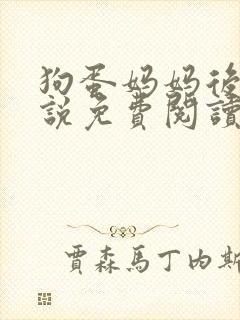 狗蛋妈妈後
説免費閱讀
賈森馬丁内斯